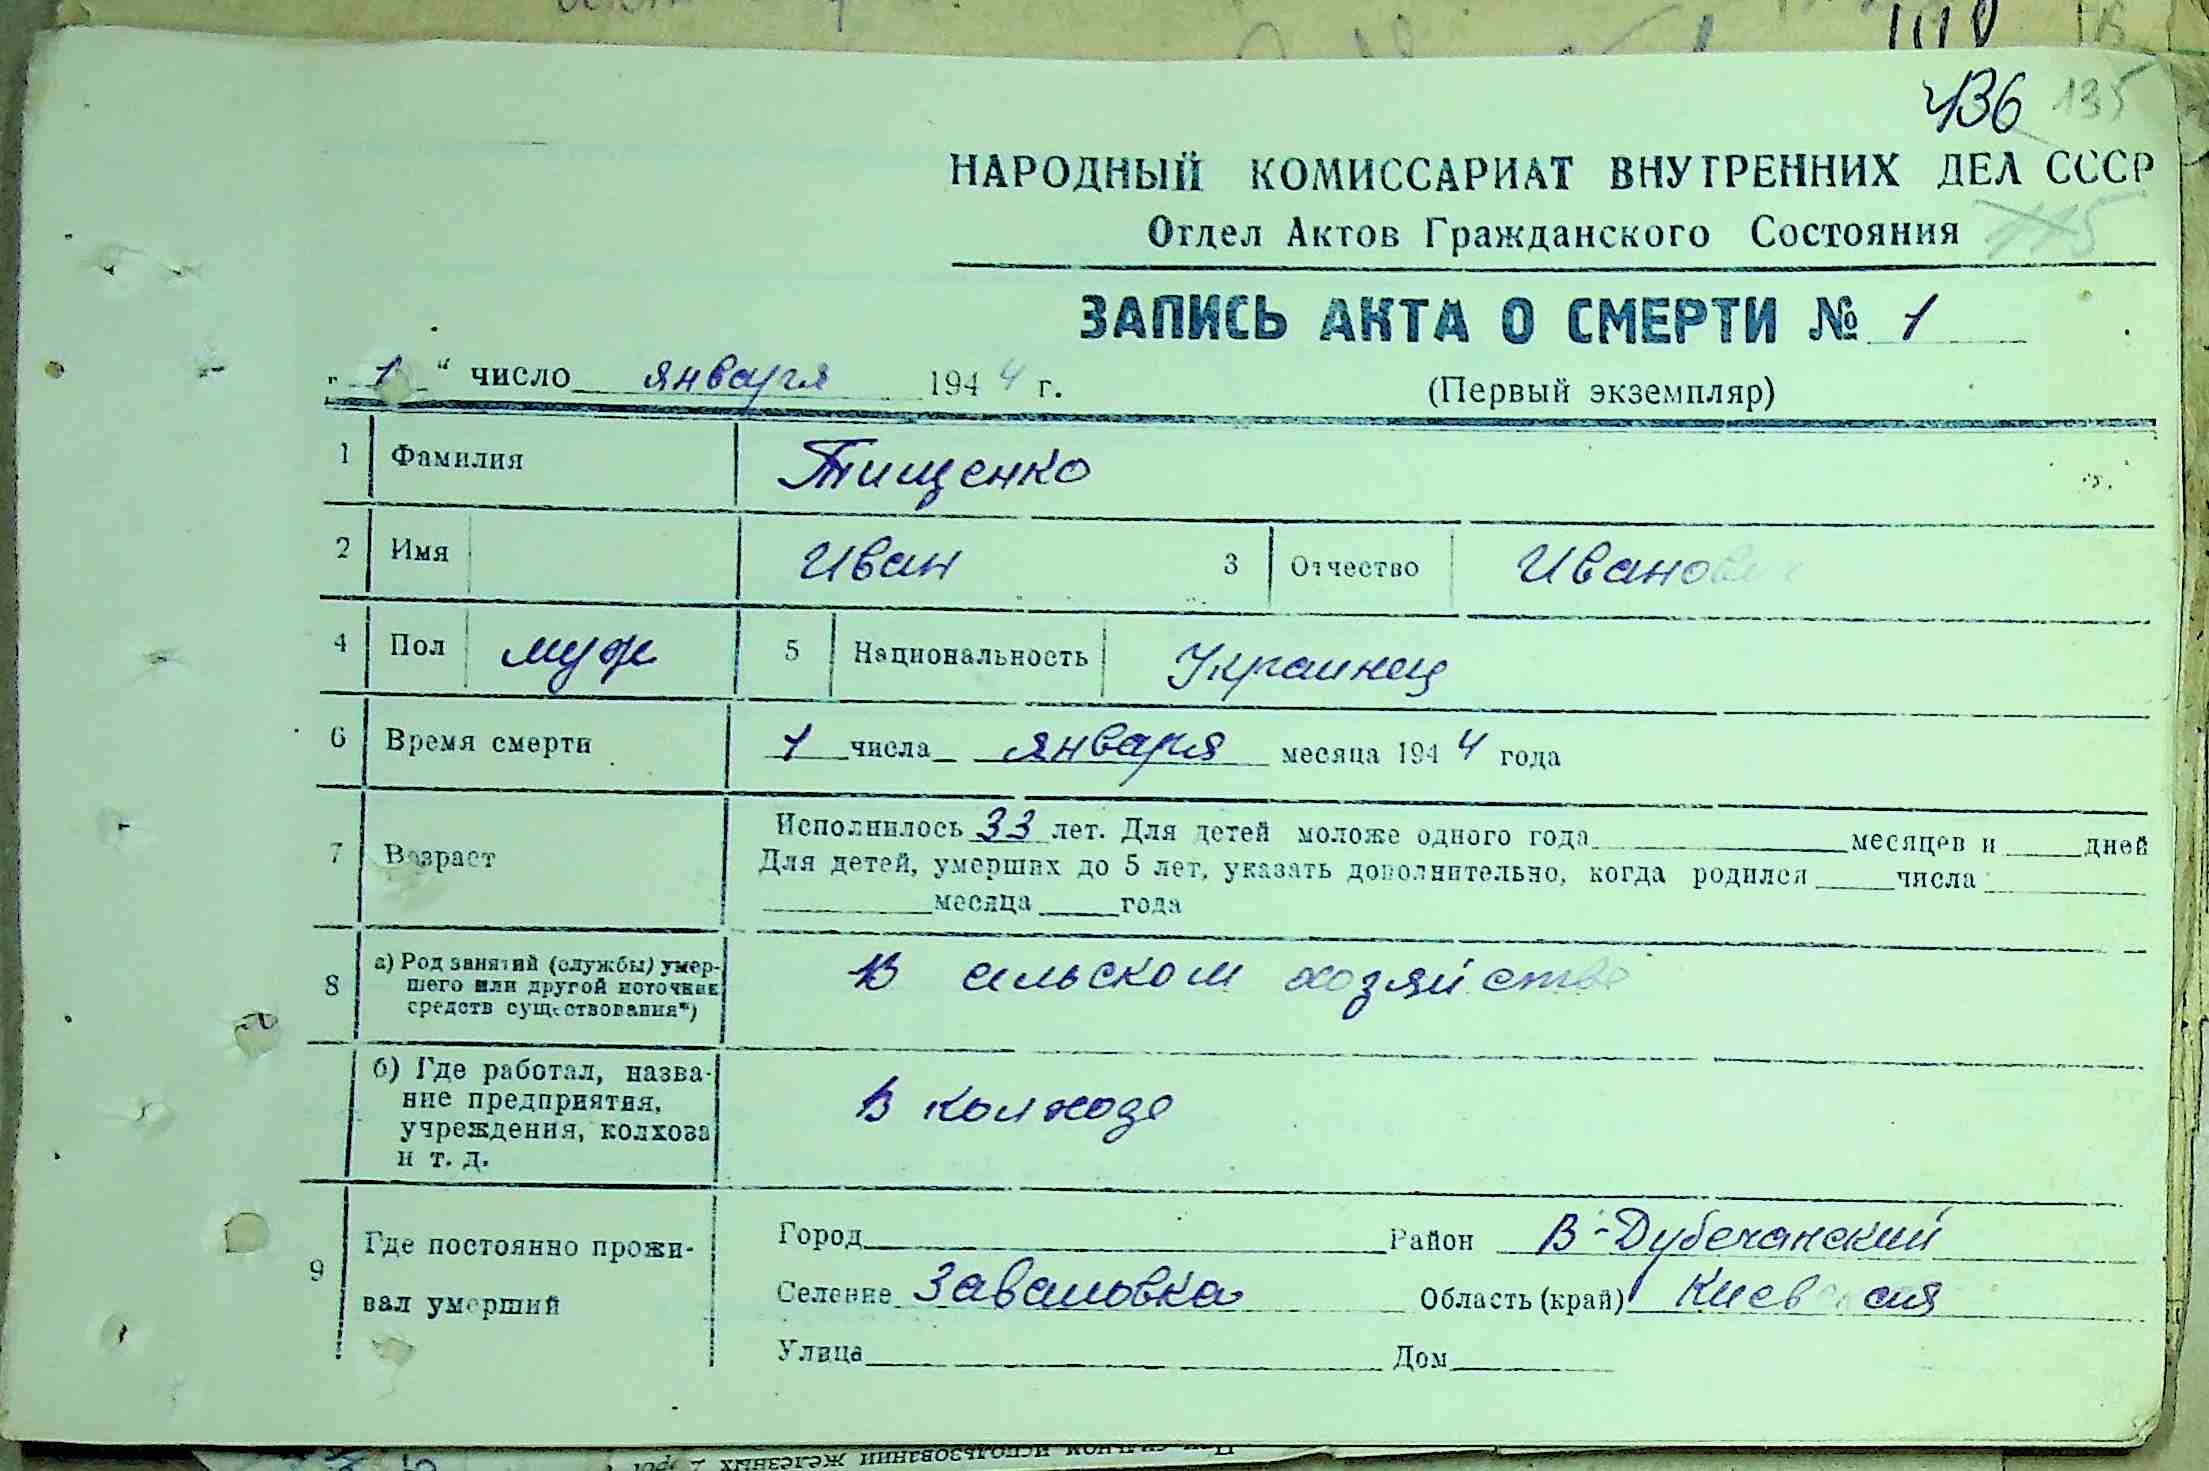 436 135
НАРОДНЫЙ КОМИССАРИАТ ВНУТРЕННИХ ДЕЛ СССР
Отдел Актов Гражданского Состояния 115
ЗАПИСЬ АКТА О СМЕРТИ № 1
"1" число января 1944 г.
(Первый экземпляр)
1 Фамилия Тищенко
2 Имя Иван 3 Отчество Иванович
4 Пол муж 5 Национальность Украинец
6 Время смерти 1 числа января месяца 1944 года
7 Возраст
Исполнилось 33 лет. Для детей моложе одного года месяцев и дней
Для детей, умерших до 5 лет, указать дополнительно, когда родился числа
месяца года
8 а) Род занятий (службы) умер-
шего или другой источник
средств существования*)
В сельском хозяйстве
б) Где работал, назва-
ние предприятия,
учреждения, колхоза
и т. д.
В колхозе
9 Где постоянно прожи-
вал умерший
Город Район В-Дубечанский
Селение Заваловка Область (край) Киевская
Улица Дом